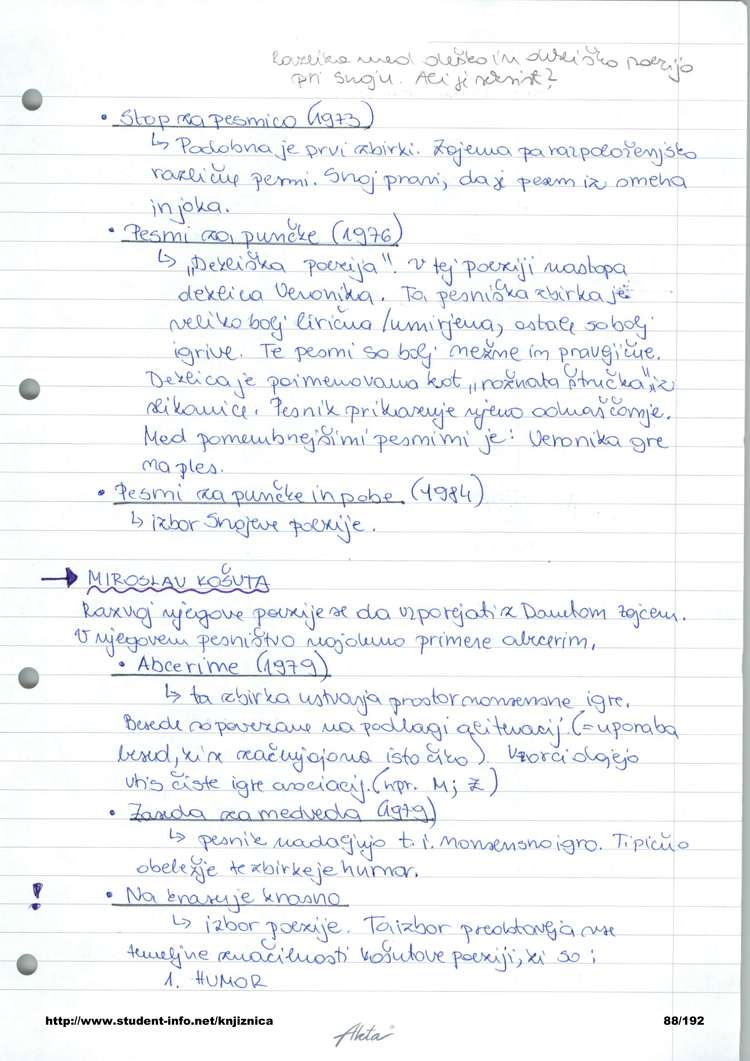 Razlika med deško in dekliško poezijo
pri Snoju. Ali ji seksist?
• Stop za pesmico (1973)
↳ Podobna je prvi zbirki. Zajema pa razpoloženjsko
različne pesmi. Snoj pravi, da je pesem iz smeha
in joka.
• Pesmi za punčke (1976)
↳ „Dekliška poezija". V tej poeziji nastopa
deklica Veronika. Ta pesniška zbirka je
veliko bolj lirična/umirjena, ostale so bolj
igrive. Te pesmi so bolj nežne in pravljične.
Deklica je poimenovana kot „rožnata štručka" iz
slikanice. Pesnik prikazuje njeno odraščanje.
Med pomembnejšimi pesmimi je: Veronika gre
na ples.
• Pesmi za punčke in pobe (1984)
↳ izbor Snojeve poezije.
→ MIROSLAV KOŠUTA
Razvoj njegove poezije se da vzporejati z Danetom Zajcem.
V njegovem pesništvo najdemo primere abcerim,
• Abcerime (1979)
↳ ta zbirka ustvarja prostor nonsensne igre.
Besede so povezane na podlagi aliteracij (=uporaba
besed, ki se začnjajo na isto črko). Vzorci dajejo
vtis čiste igre asociacij. (npr. M; Ž)
• Zaseda za medveda (1979)
↳ pesnik nadaljujo t. i. nonsensno igro. Tipično
obeležje te zbirke je humor.
! • Na Krasu je krasno
↳ izbor poezije. Ta izbor predstavlja vse
temeljne značilnosti Košutove poeziji, ki so:
1. HUMOR
http://www.student-info.net/knjiznica
88/192
Akta